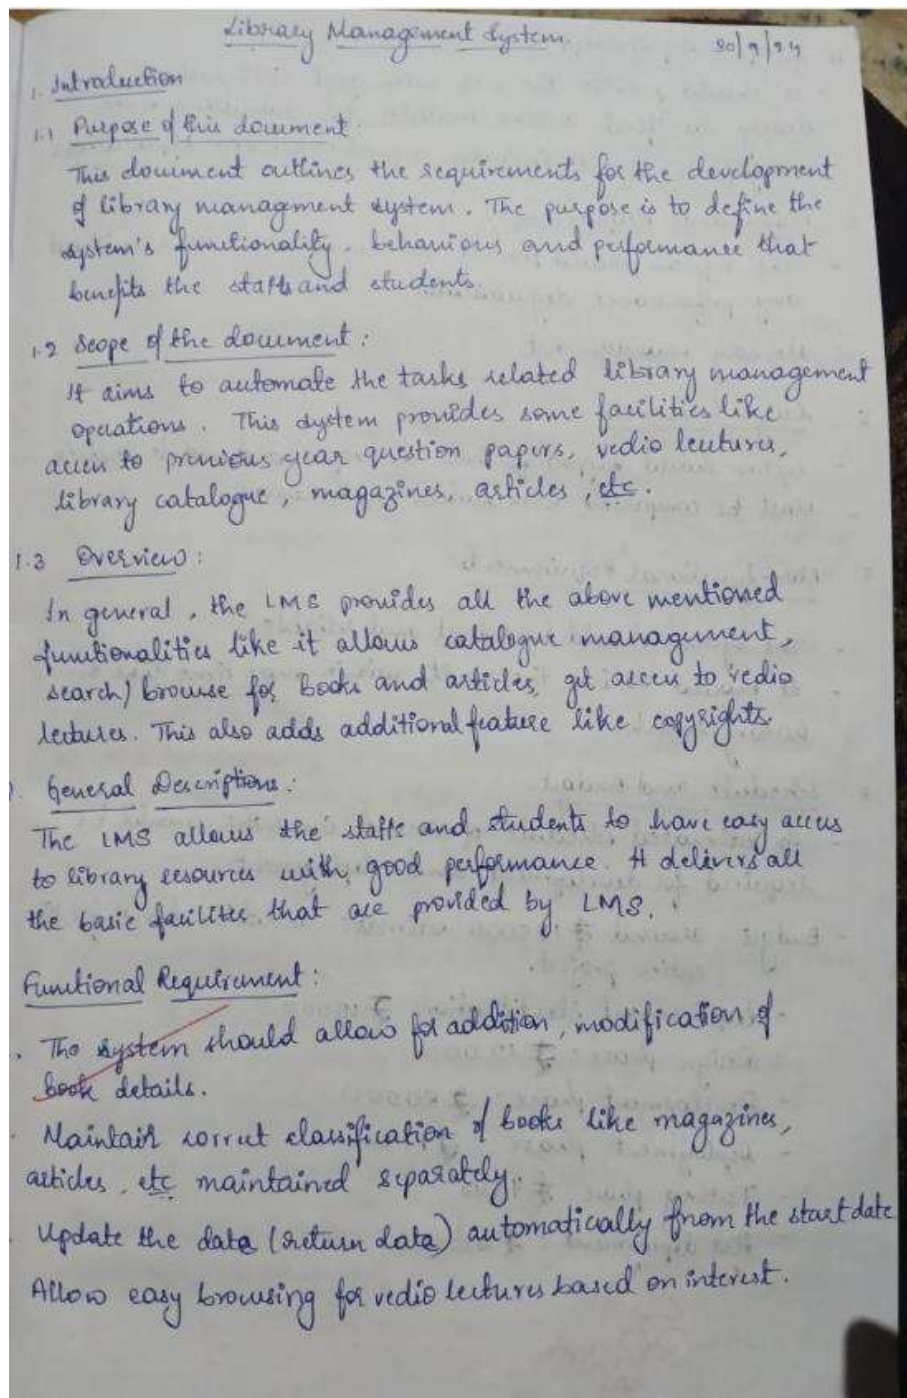 Library Management System
30/9/24
1. Introduction
1.1 Purpose of this document:
This document outlines the requirements for the development
of library management system. The purpose is to define the
system's functionality, behaviours and performance that
benefits the staffs and students.
1.2 Scope of the document:
It aims to automate the tasks related library management
operations. This system provides some facilities like
access to previous year question papers, vedio lectures,
library catalogue, magazines, articles, etc.
1.3 Overview:
In general, the LMS provides all the above mentioned
functionalities like it allows catalogue management,
search/browse for books and articles, get access to vedio
lectures. This also adds additional feature like copyrights.
General Descriptions:
The LMS allows the staffs and students to have easy access
to library resources with good performance. It delivers all
the basic facilites that are provided by LMS.
Functional Requirement:
. The system should allow for addition, modification of
book details.
. Maintain correct classification of books like magazines,
articles, etc maintained separately.
. Update the data (return data) automatically from the start date
Allow easy browsing for vedio lectures based on interest.